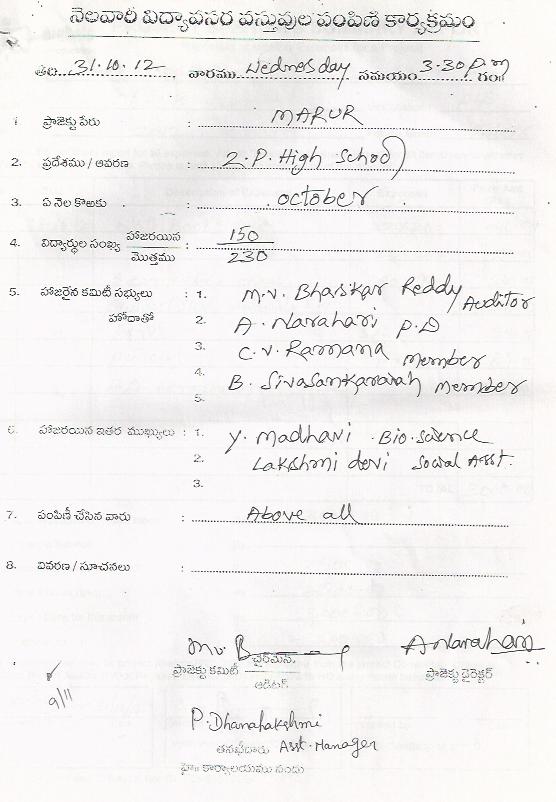 నెలవారీ విద్యావసర వస్తువుల పంపిణి కార్యక్రమం
తేది 31.10.12 వారము Wednesday సమయం 3.30 P.m గం॥
1. ప్రాజెక్టు పేరు : MARUR
2. ప్రదేశము / ఆవరణ : Z.P. High School
3. ఏ నెల కొఱకు : October
4. విద్యార్థుల సంఖ్య హాజరయిన : 150
మొత్తము 230
5. హాజరైన కమిటీ సభ్యులు : 1. M.V. Bhaskar Reddy Auditor
హోదాతో 2. A. Narahari P.D
3. C.V. Ramana member
4. B. Sivasankaraiah Member
5.
6. హాజరయిన ఇతర ముఖ్యులు : 1. Y. Madhavi Bio. Science
2. Lakshmi devi Social Asst.
3.
7. పంపిణీ చేసిన వారు : Above all
8. వివరణ / సూచనలు :
A Narahari
ప్రాజెక్టు కమిటీ ఛైర్మెన్ ప్రాజెక్టు డైరెక్టర్
ఆడిటర్
9/11
P. Dhanalakshmi
తనిఖీదారు Asst. Manager
హె॥ కార్యాలయము నందు